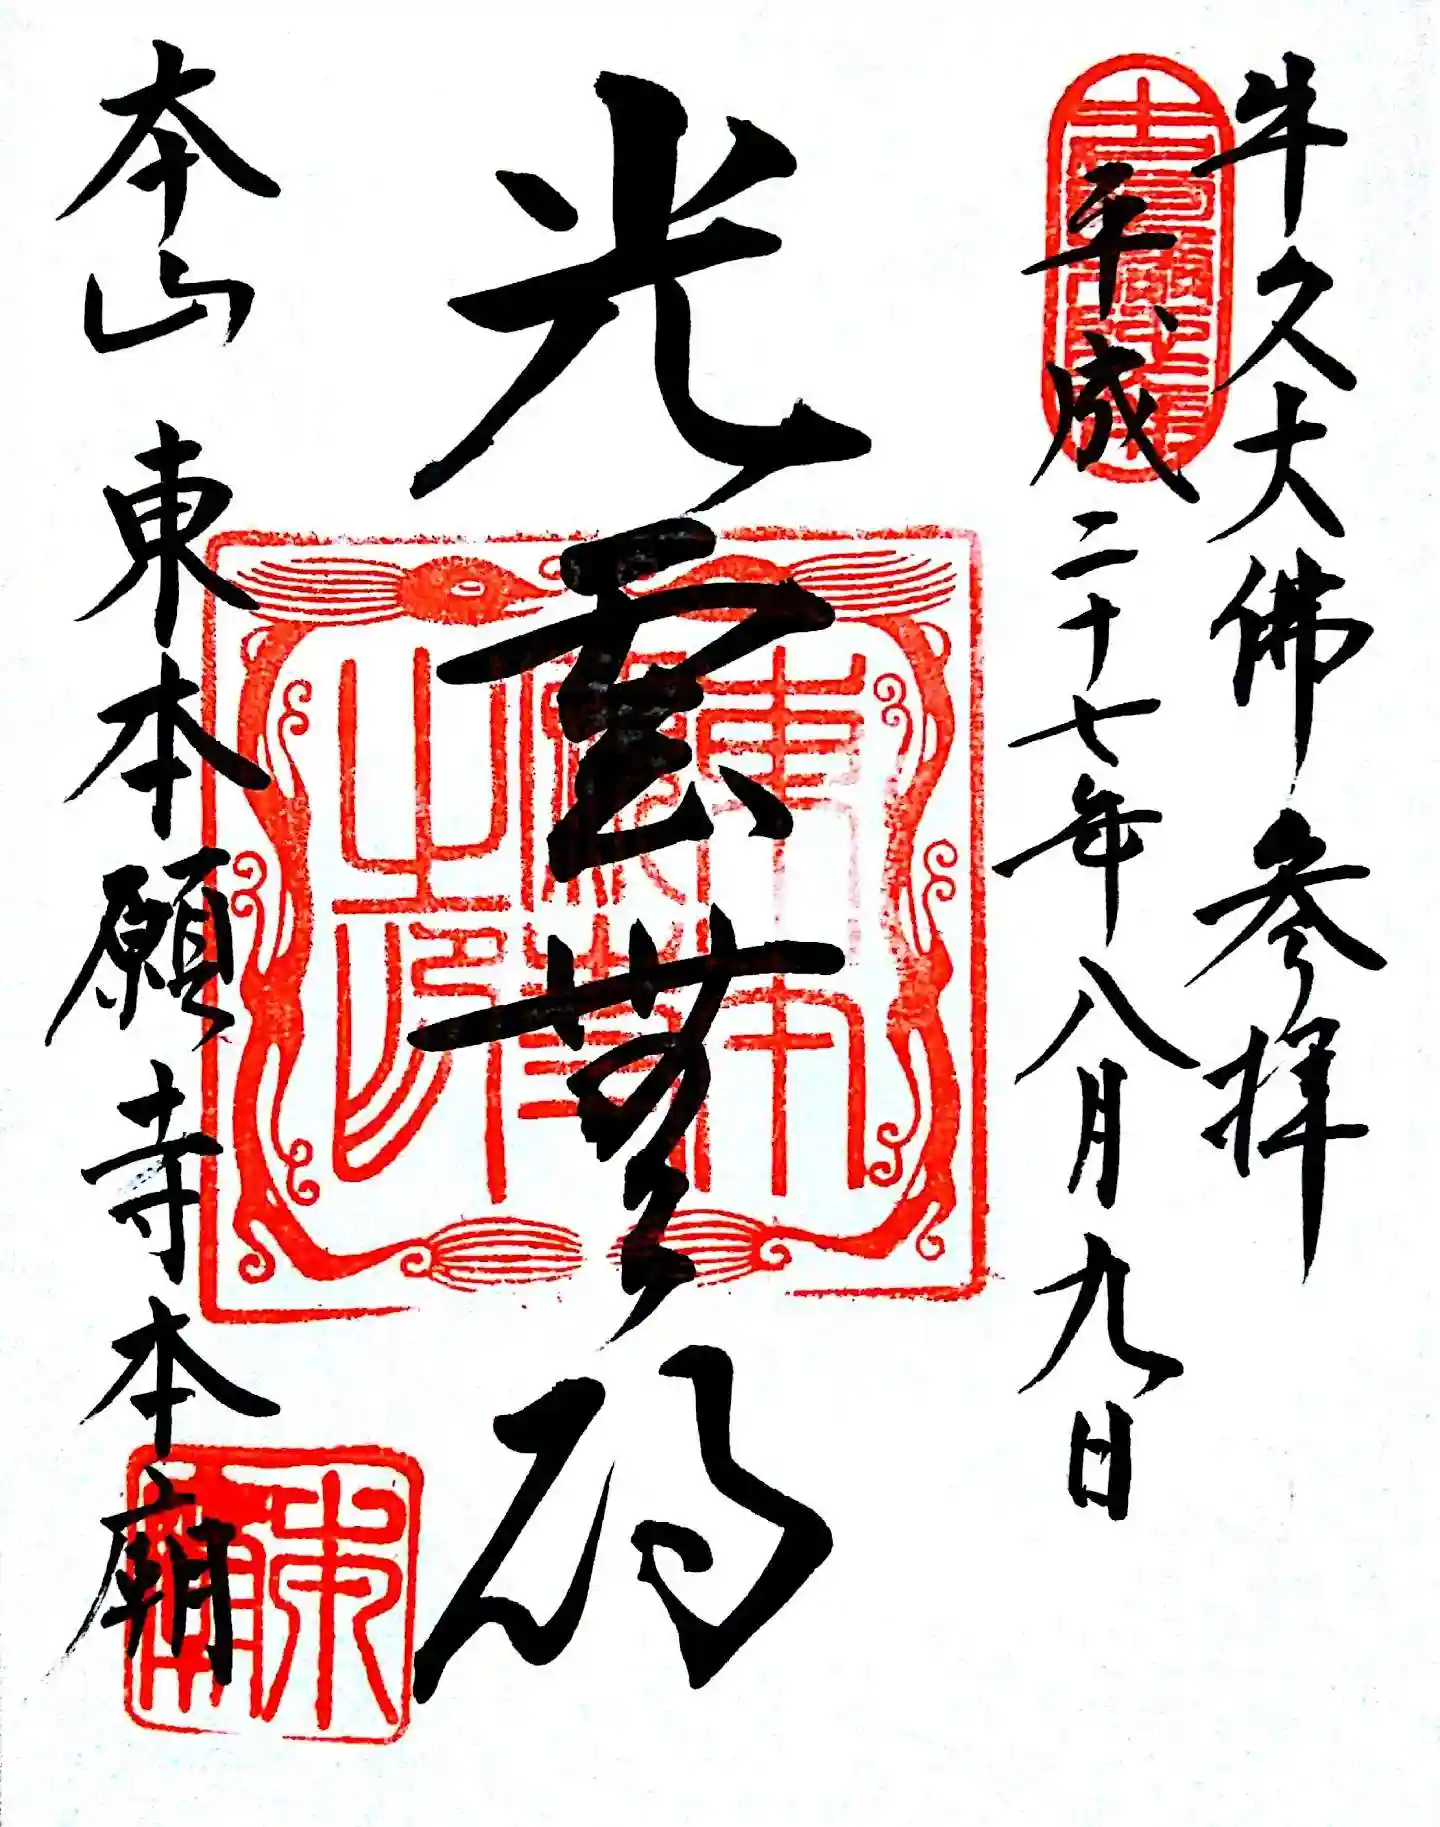 牛久大佛 参拝
平成二十七年八月九日
光雲無碍
東本願寺之印
本山 東本願寺本廟